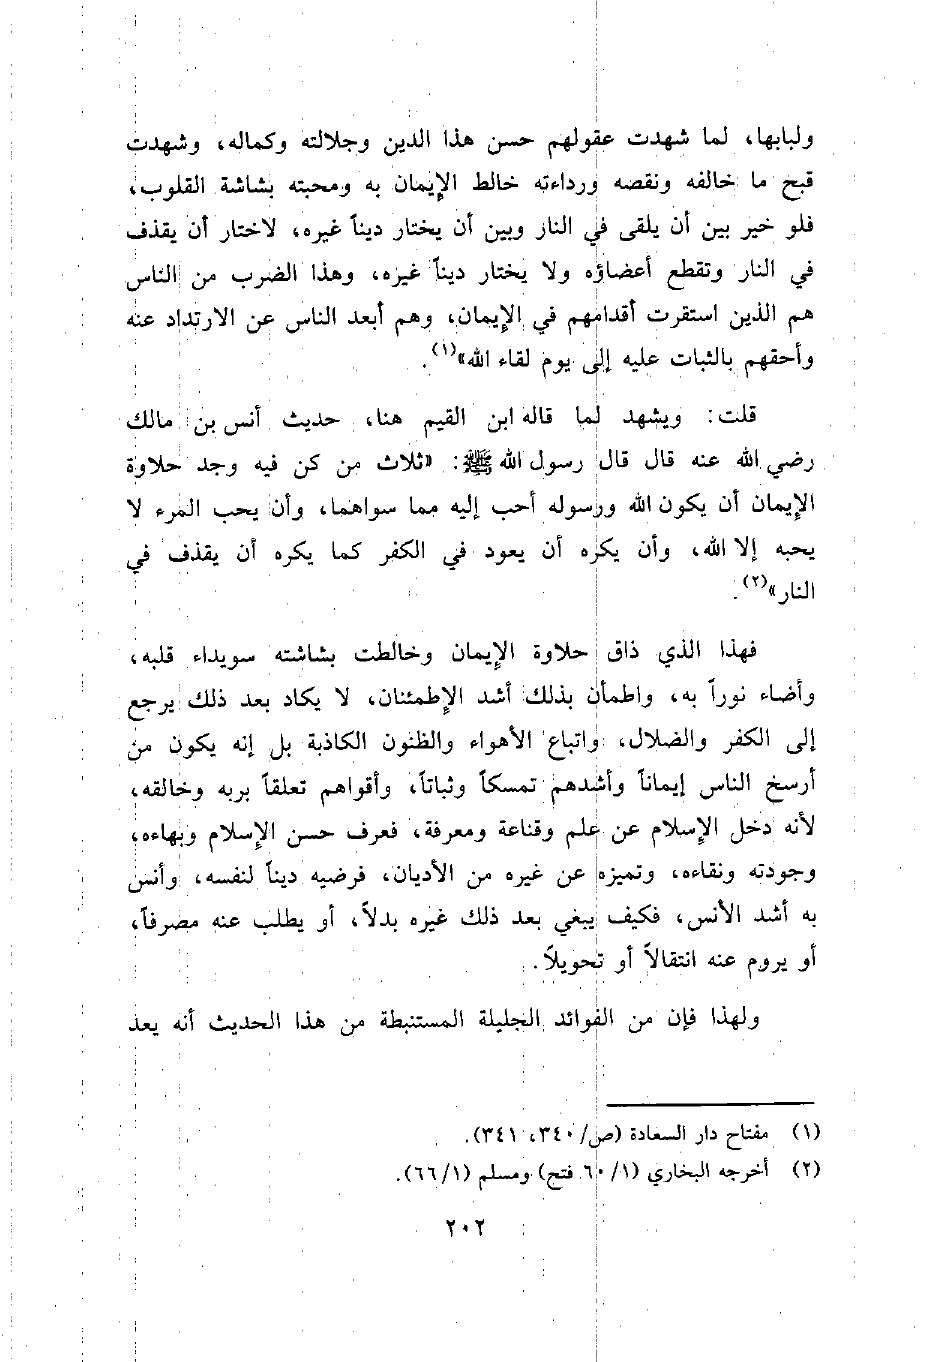 ولبابها، لما شهدت عقولهم حسن هذا الدين وجلالته وكماله، وشهدت
قبح ما خالفه ونقصه ورداءته خالط الإيمان به ومحبته بشاشة القلوب،
فلو خير بين أن يلقى في النار وبين أن يختار ديناً غيره، لاختار أن يقذف
في النار وتقطع أعضاؤه ولا يختار ديناً غيره، وهذا الضرب من الناس
هم الذين استقرت أقدامهم في الإيمان، وهم أبعد الناس عن الارتداد عنه
وأحقهم بالثبات عليه إلى يوم لقاء الله»(١).
قلت: ويشهد لما قاله ابن القيم هنا، حديث أنس بن مالك
رضي الله عنه قال قال رسول الله ﷺ: «ثلاث من كن فيه وجد حلاوة
الإيمان أن يكون الله ورسوله أحب إليه مما سواهما، وأن يحب المرء لا
يحبه إلا الله، وأن يكره أن يعود في الكفر كما يكره أن يقذف في
النار»(٢).
فهذا الذي ذاق حلاوة الإيمان وخالطت بشاشته سويداء قلبه،
وأضاء نوراً به، واطمأن بذلك أشد الإطمئنان، لا يكاد بعد ذلك يرجع
إلى الكفر والضلال، واتباع الأهواء والظنون الكاذبة بل إنه يكون من
أرسخ الناس إيماناً وأشدهم تمسكاً وثباتاً، وأقواهم تعلقاً بربه وخالقه،
لأنه دخل الإسلام عن علم وقناعة ومعرفة، فعرف حسن الإسلام وبهاءه،
وجودته ونقاءه، وتميزه عن غيره من الأديان، فرضيه ديناً لنفسه، وأنس
به أشد الأنس، فكيف يبغي بعد ذلك غيره بدلاً، أو يطلب عنه مصرفاً،
أو يروم عنه انتقالاً أو تحويلاً.
ولهذا فإن من الفوائد الجليلة المستنبطة من هذا الحديث أنه يعد
(١) مفتاح دار السعادة (ص/٣٤٠، ٣٤١).
(٢) أخرجه البخاري (٦٠/١ فتح) ومسلم (٦٦/١).
٢٠٢